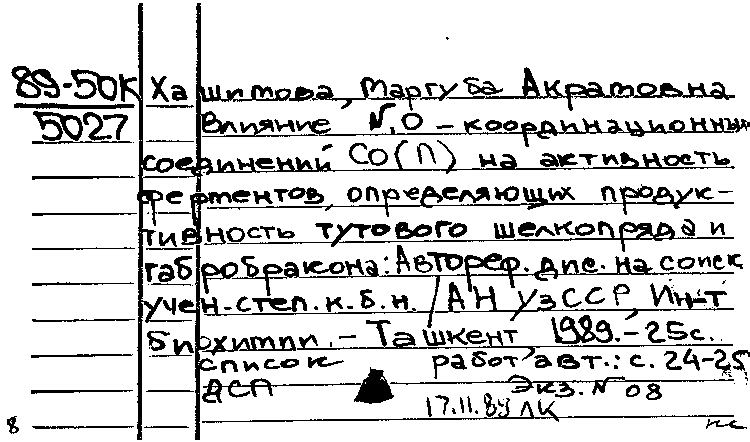 89-50К Хашимова, Маргуба Акрамовна
5027 Влияние N,O - координационных
соединений CO(П) на активность
ферментов, определяющих продук-
тивность тутового шелкопряда и
габробракона: Автореф. дис. на соиск
учен. степ. к.б.н. / АН УзССР, Ин-т
биохимии. - Ташкент 1989. - 25с.
Список работ авт.: с. 24-25
ДСП Экз. N 08
17.11.89 ЛК
8